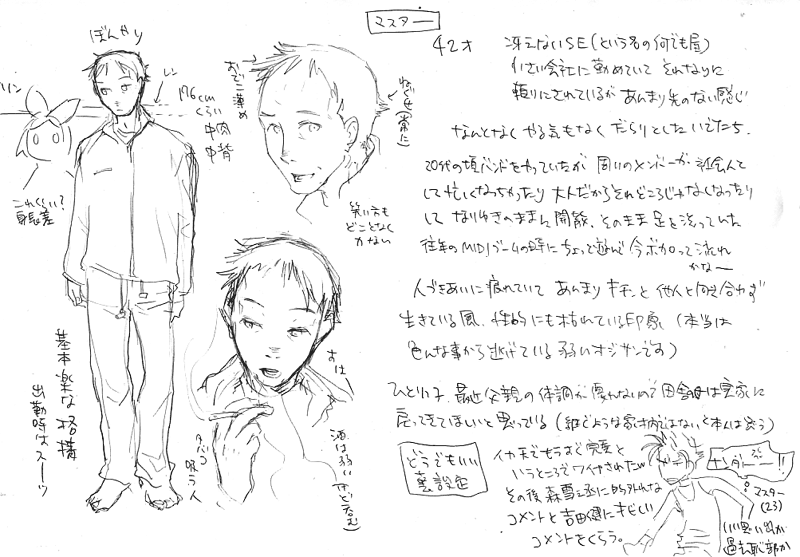 マスター
ぼんやり
リン
レン
176cm
くらい
中肉
中背
これくらい?
身長差
おでこ薄め
ねぐせ(常に)
笑い方も
どことなく
かない
基本楽な格構
出勤時はスーツ
タバコ
吸う人
酒は弱い(けど呑む)
42才
冴えないSE(という名の何でも屋)
小さい会社に勤めていて それなりに
頼りにされているが あんまり先のない感じ
なんとなく やる気もなく だらりとしたいでたち.
20代の頃バンドをやっていたが 周りのメンバーが 社会人と
して忙しくなっちゃったり 大人だからそれどころじゃなくなったり
して なりゆきのままに 開散、そのまま足を洗っていた
往年のMIDIブームの時にちょっと遊んで 今ボカロって流れ
かなー
人づきあいに疲れていて あんまり キチンと 他人と向き合わず
生きている風、性的にも枯れている印象 (本当は
色んな事から逃げている 弱いオジサンです)
ひとりっ子、最近父親の体調が優れないので田舎の母は実家に
戻ってきてほしいと思っている (継ぐような家柄ではないと本人は思う)
どうでもいい
裏設定
イカ天でもうすぐ完奏と
いうところでワイプされたw
その後 森雪之丞に的外れな
コメントと吉田建にきびしい
コメントをくらう。
マスター
(23)
いい思い出か
過去の恥部か